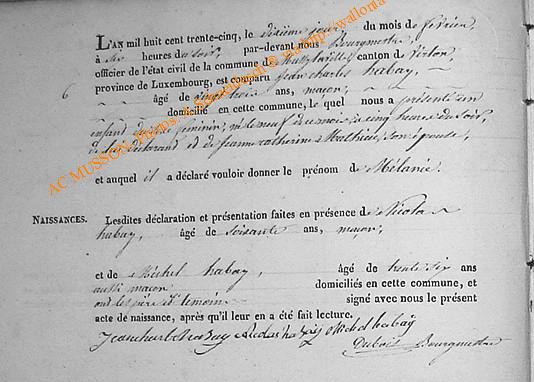 L'AN mil huit cent trente-cinq, le dixième jour du mois de février,
à six heures du soir, par-devant nous Bourgmestre
officier de l'état civil de la commune de Mussy la ville canton de Virton,
province de Luxembourg, est comparu Jean Charles habay,
6
âgé de vingt trois ans, maçon,
domicilié en cette commune, le quel nous a présenté un
enfant du sexe féminin, né le neuf du mois à cinq heures du soir,
de lui déclarant et de Jeanne Catherine Mathieu, son épouse,
et auquel il a déclaré vouloir donner le prénom de Mélanie.
NAISSANCES. Lesdites déclaration et présentation faites en présence de Nicolas
habay, âgé de soixante ans, maçon,
et de Michel habay, âgé de trente six ans
aussi maçon domiciliés en cette commune, et
ont les père et témoins signé avec nous le présent
acte de naissance, après qu'il leur en a été fait lecture.
Jean Charles habay Nicolas habay Michel habay
Dubois Bourgmestre
AC MUSSON, Photos: http://wallonia